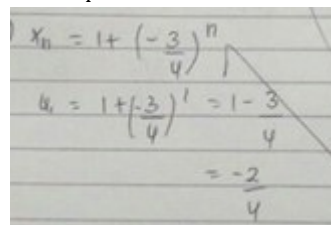 ) xₙ = 1 + (-3/4)ⁿ
u₁ = 1 + (-3/4)¹ = 1 - 3/4
= -2/4